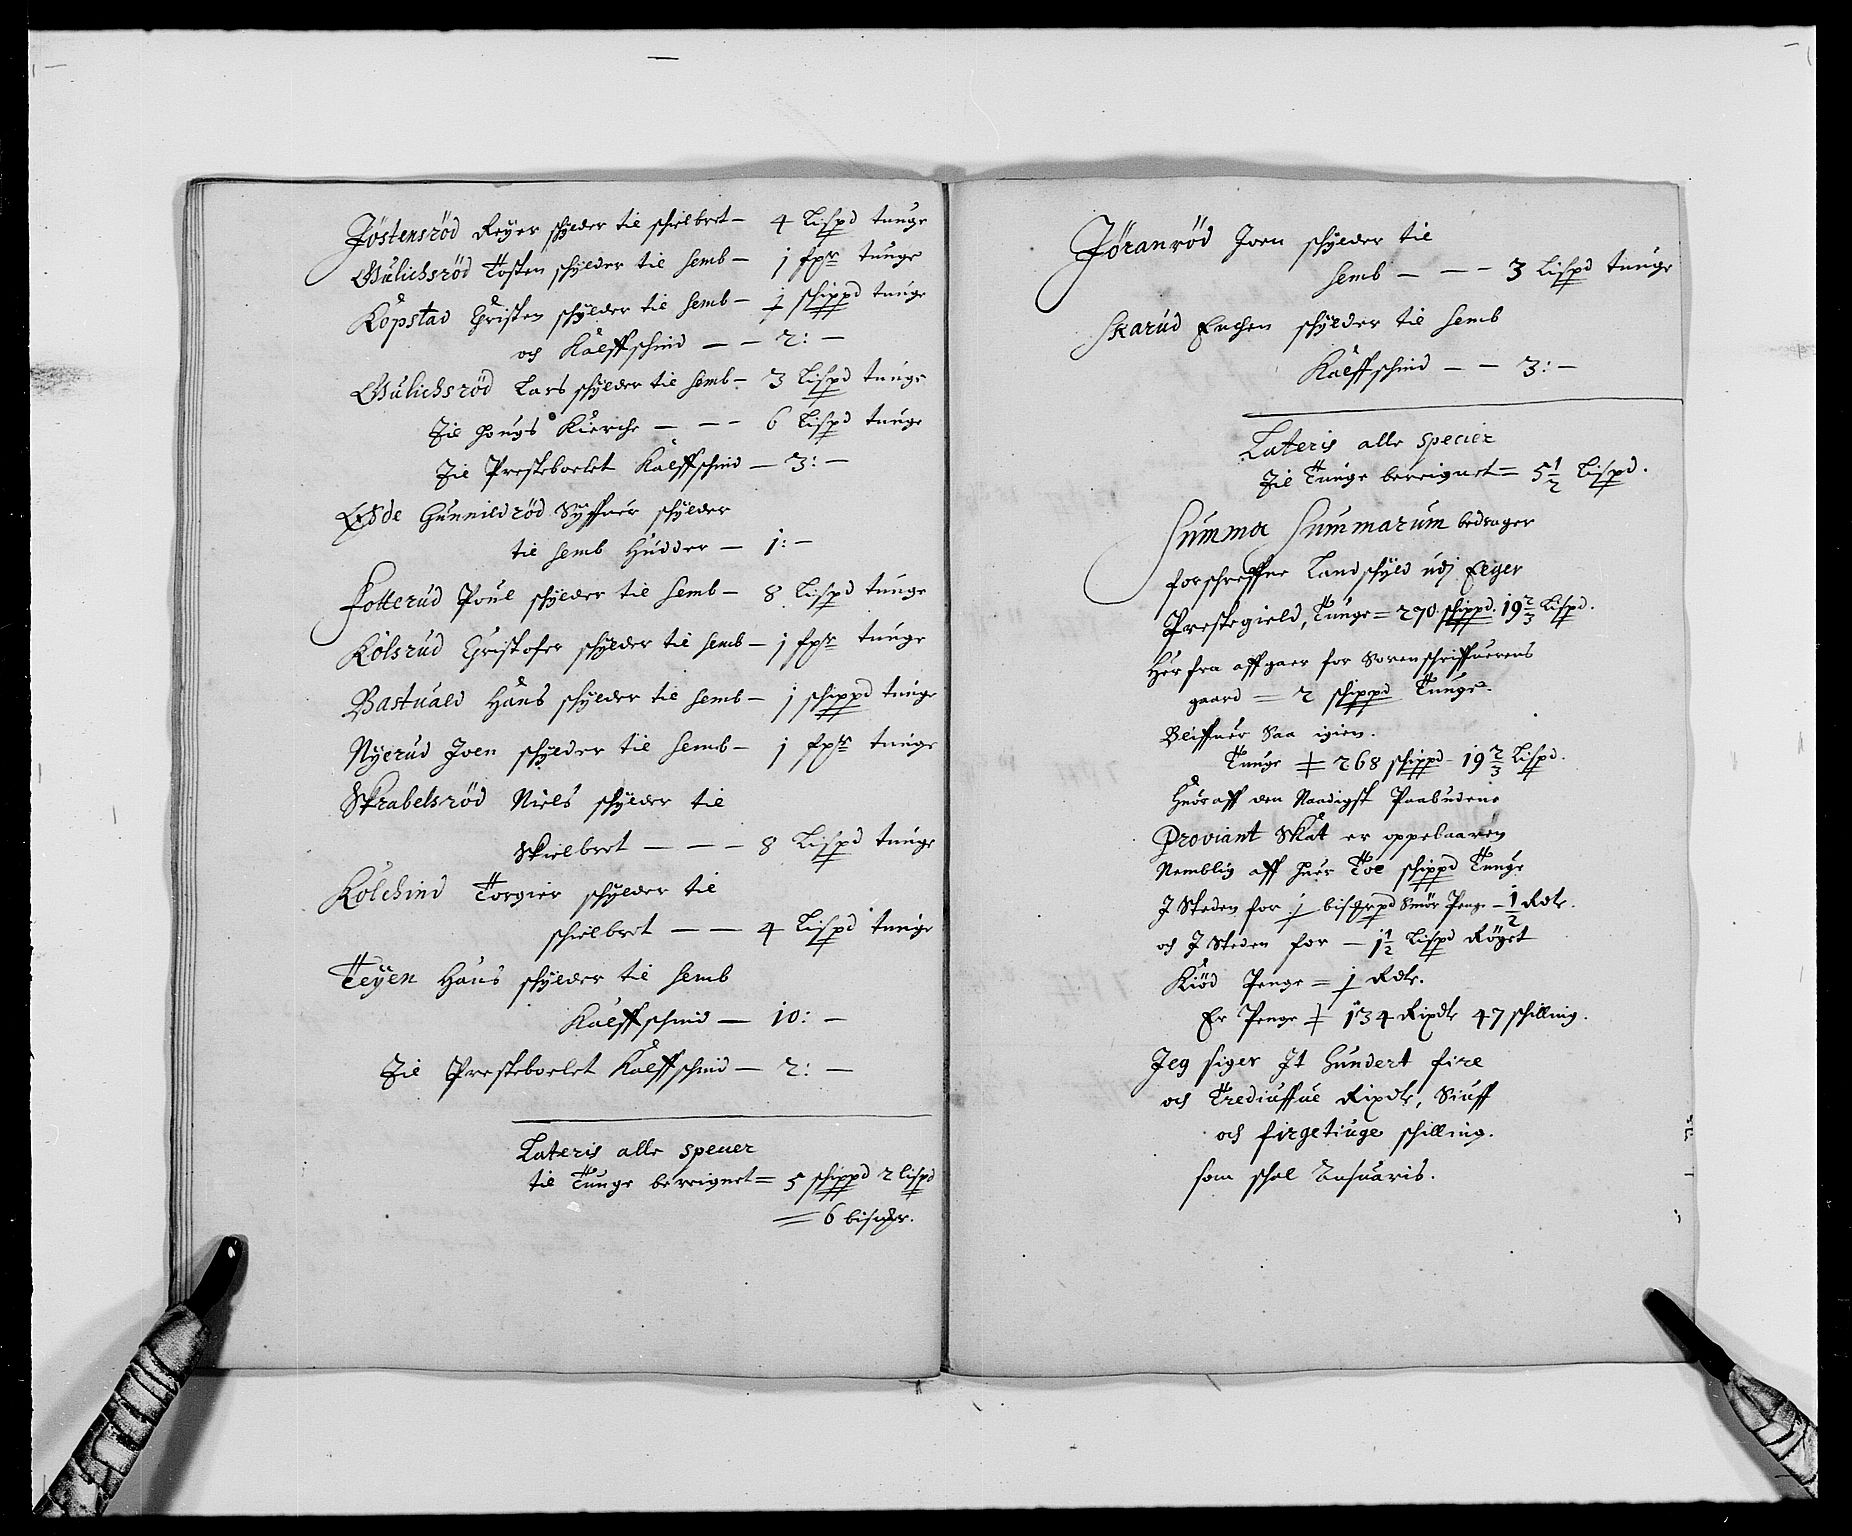 Jöstensröd Reyer schylder til schielbret – 4 Lispd tunge
Gulichsröd Tosten schylder til Semb – 1 fpr tunge
Kopstad Christen schylder til Semb – 1 schippd tunge
och Kalffschind – – 2: –
Gulichsröd Lars schylder til Semb – 3 Lispd tunge
Til Hougs Kierche – – – 6 Lispd tunge
Til Presteboelet Kalffschind – 3: –
Øde Gunnildröd Syffuer schylder
til Semb Hudder – 1: –
Fotterud Poul schylder til Semb – 8 Lispd tunge
Kolsrud Christofer schylder til Semb – 1 fpr tunge
Bastuald Hans schylder til Semb – 1 schippd tunge
Nyerud Joen schylder til Semb – 1 fpr tunge
Skrabelsröd Niels schylder til
Skielbret – – – 8 Lispd tunge
Kolchind Torgier schylder til
schielbret – – 4 Lispd tunge
Teyen Hans schylder til Semb
Kalffschind – 10: –
Til Presteboelet Kalffschind – 2: –
Lateris alle specier
til Tunge bereignet = 5 schippd 2 lispd
= 6 bismer.
Jöranröd Joen schylder til
Semb – – – 3 Lispd tunge
Skarud Enchen schylder til Semb
Kalffschind – – 3: –
Lateris alle specier
Til Tunge bereignet = 5 1/2 Lispd.
Summa Summarum bedrager
forschreffne Landschyld udj Eger
Prestegield, Tunge = 270 schippd. 19 2/3 Lispd.
Her fra affgaer for Sorenschriffuerens
gaard = 2 schippd Tunge.
Bliffuer Saa igien.
Tunge = 268 schippd – 19 2/3 Lispd.
Huor aff den Naadigst Paabudene
Proviant Skat er oppebaaren
Nemblig aff huer Toe schippd Tunge
J Steden for 1 bismerpd Smör Penge – 1/2 Rdlr.
och J Steden for – 1 1/2 Lispd Röget
Kiöd Penge = 1 Rdlr.
Er Penge = 134 Rixdlr 47 schilling.
Jeg siger Jt Hundert fire
och Trediuffue Rixdlr, Siuff
och firgetiuge schilling.
som schal Ansuaris.